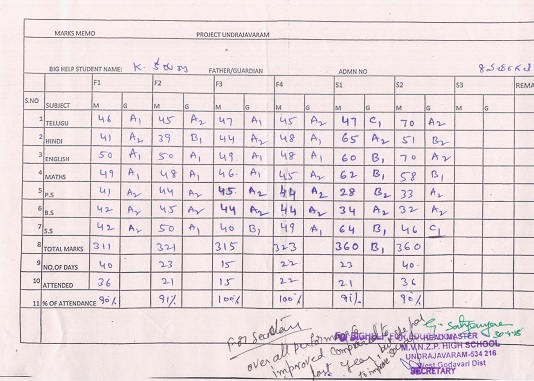 MARKS MEMO PROJECT UNDRAJAVARAM
BIG HELP STUDENT NAME: K. FATHER/GUARDIAN ADMN NO
F1 F2 F3 F4 S1 S2 S3
S.NO SUBJECT M G M G M G M G M G M G M G REMA
1 TELUGU 46 A1 45 A2 47 A1 45 A2 47 C1 70 A2
2 HINDI 41 A2 39 B1 44 A2 48 A1 65 A2 51 B2
3 ENGLISH 50 A1 50 A1 49 A1 48 A1 60 B1 70 A2
4 MATHS 49 A1 48 A1 46 A1 45 A2 62 B1 58 B1
5 P.S 41 A2 44 A2 45 A2 44 A2 28 B2 33 A2
6 B.S 42 A2 45 A2 44 A2 44 A2 34 A2 32 A2
7 S.S 42 A2 50 A1 40 B1 49 A1 64 B1 46 C1
8 TOTAL MARKS 311 321 315 323 360 B1 360
9 NO.OF DAYS 40 23 15 22 23 40
10 ATTENDED 36 21 15 22 21 36
11 % OF ATTENDANCE 90% 91% 100% 100% 91% 90%
For Secretary
over all performance
improved compared to
last year
to improve
HEADMASTER
M.V.N.Z.P. HIGH SCHOOL
UNDRAJAVARAM-534 216
West Godavari Dist
SECRETARY